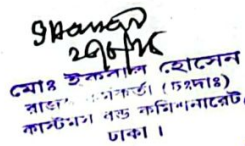 মোঃ ইকবাল হোসেন
রাজস্ব কর্মকর্তা (চঃদাঃ)
কাস্টমস বন্ড কমিশনারেট
ঢাকা।